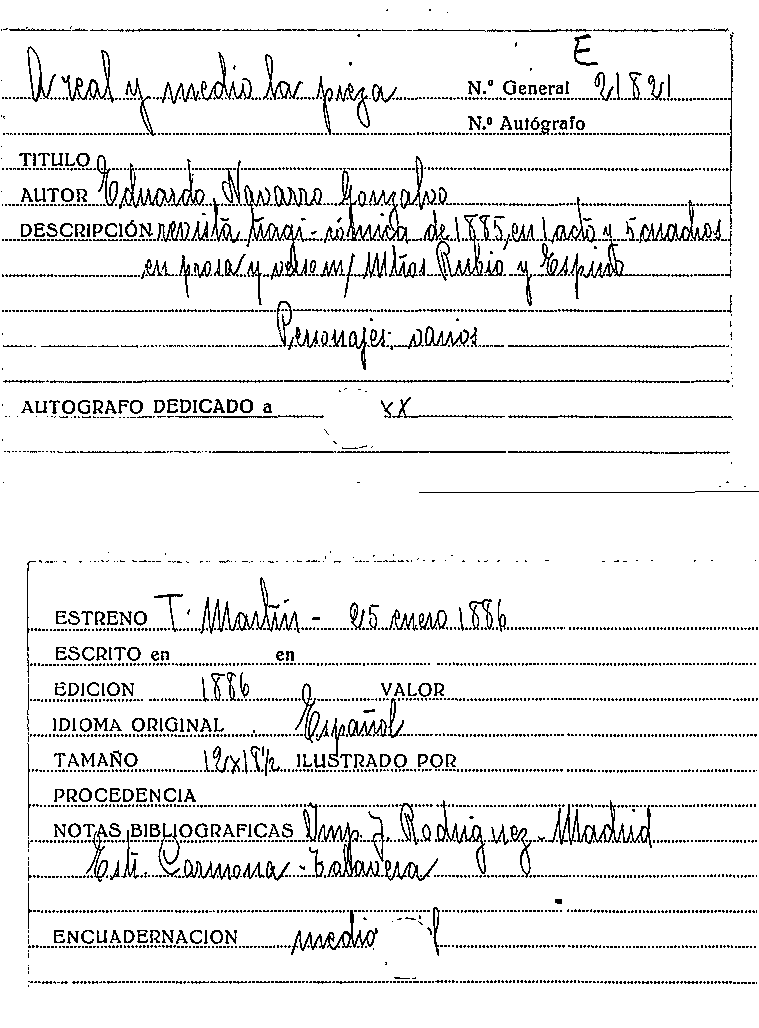 E
A real y medio la pieza N.º General 21821
N.º Autógrafo
TITULO
AUTOR Eduardo Navarro Gonzalvo
DESCRIPCIÓN revista tragi-cómica de 1885, en 1 acto y 5 cuadros
en prosa y verso m/ Mtros Rubio y Espino
Personajes: varios
AUTOGRAFO DEDICADO a XX
ESTRENO T. Martín - 25 enero 1886
ESCRITO en en
EDICION 1886 VALOR
IDIOMA ORIGINAL Español
TAMAÑO 12x18½ ILUSTRADO POR
PROCEDENCIA
NOTAS BIBLIOGRAFICAS Imp. J. Rodriguez - Madrid
Est. Carmona - Talavera
ENCUADERNACION medio